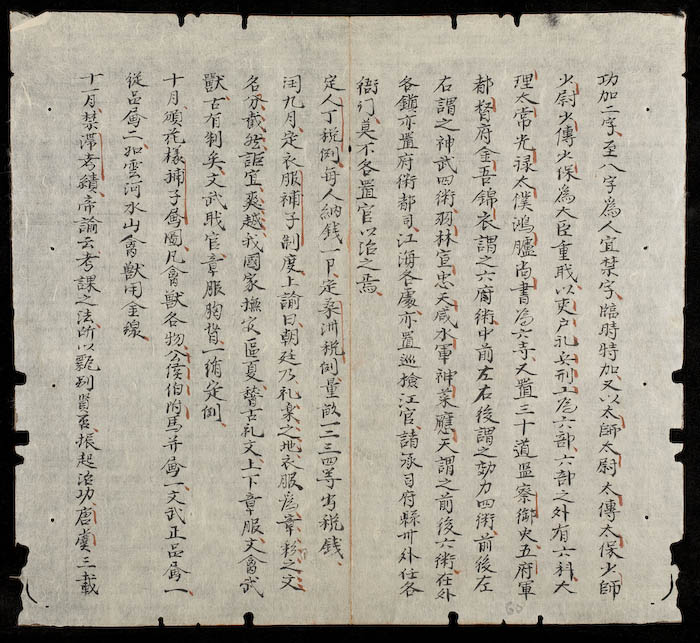 功加二字至八字為人宜禁字臨時特加又以太師太尉太傳太保少師
少尉少傳少保為大臣重職以吏户礼兵刑工為六部六部之外有六科大
理太常光禄太僕鴻臚尚書為六寺又置三十道监察御史五府軍
都督府金吾錦衣謂之六府衛中前左右後謂之効力四衛前後左
右謂之神武四衛羽林宣忠天威水軍神策應天謂之前後六衛在外
各鎮亦置府衛都司江海各處亦置巡撿江官諸承司府縣州外任各
衙门莫不各置官以治之焉
定人丁稅例每人納钱一卩定桑洲稅例量畝一二三四等出稅錢
闰九月定衣服補子制度上諭曰朝廷乃礼樂之地衣服為章彩之文
名分截然詎宜爽越我國家撫衣區夏謦古礼文上下章服文禽武
獸古有制矣文武戝官章服胸背一循定例
十月頒花樣補子為圖凡禽獸各物公侯伯附馬并為一文武正品為一
從品為二如雲河水山禽獸用金線
十一月禁滞考績帝諭云考課之法所以甄别賢否振起治功唐虞三載
60